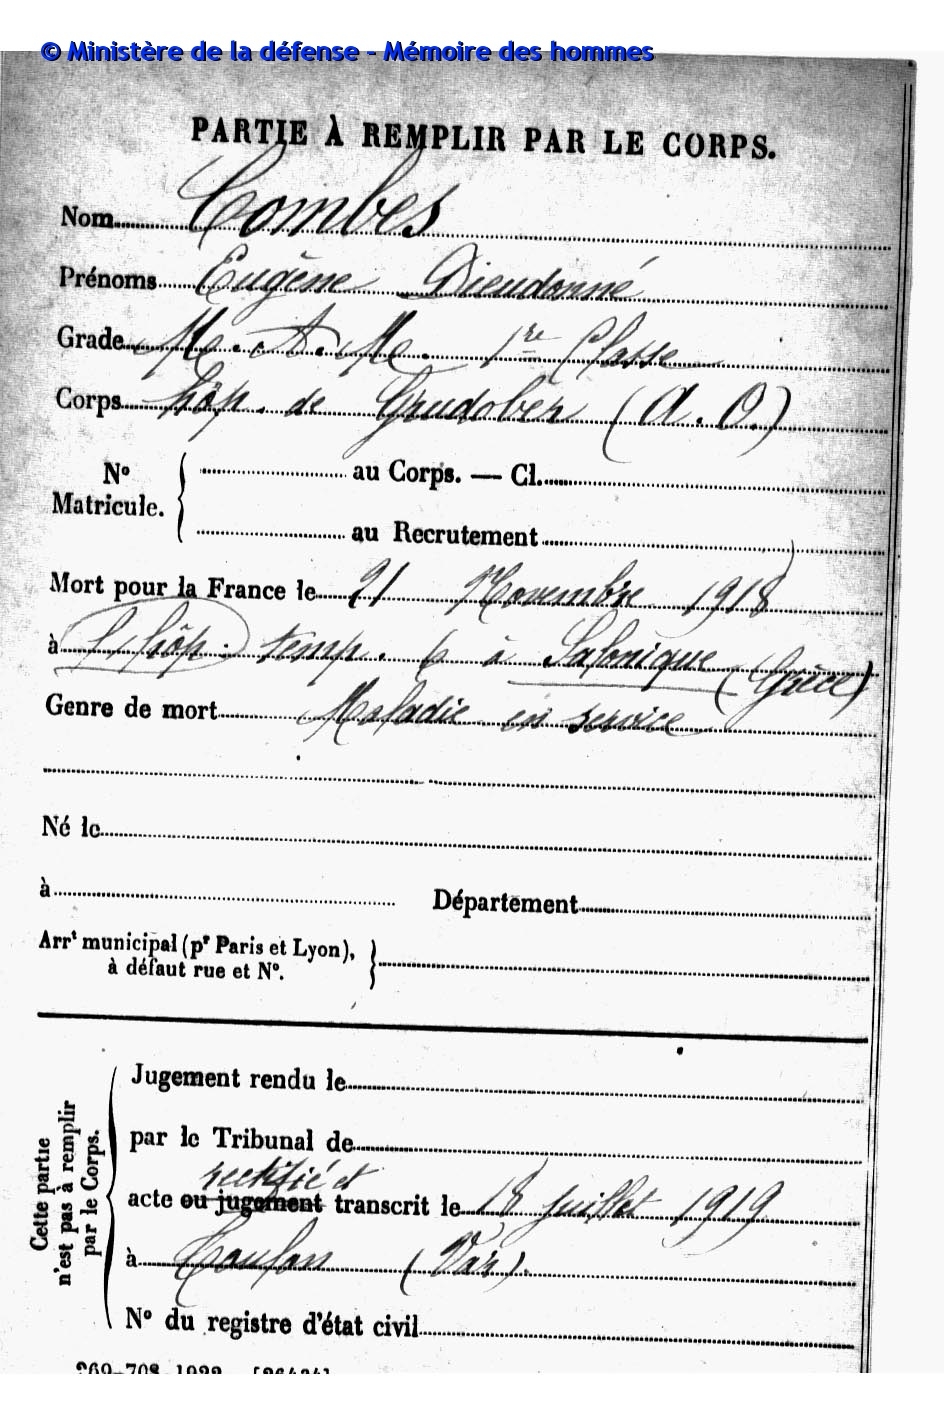 © Ministère de la défense - Mémoire des hommes
PARTIE À REMPLIR PAR LE CORPS.
Nom Combes
Prénoms Eugène Dieudonné
Grade Me. A. Me. 1re Classe
Corps hôp. de (A. O.)
No Matricule. { au Corps. — Cl.
au Recrutement
Mort pour la France le 21 Novembre 1918
à l'hôp. temp. 6 à Salonique (Grèce)
Genre de mort Maladie en service
Né le
à Département
Arrt municipal (pr Paris et Lyon), }
à défaut rue et No.
Cette partie
n'est pas à remplir
par le Corps.
Jugement rendu le
par le Tribunal de
rectifié et
acte ou jugement transcrit le 18 Juillet 1919
à Toulon (Var).
No du registre d'état civil